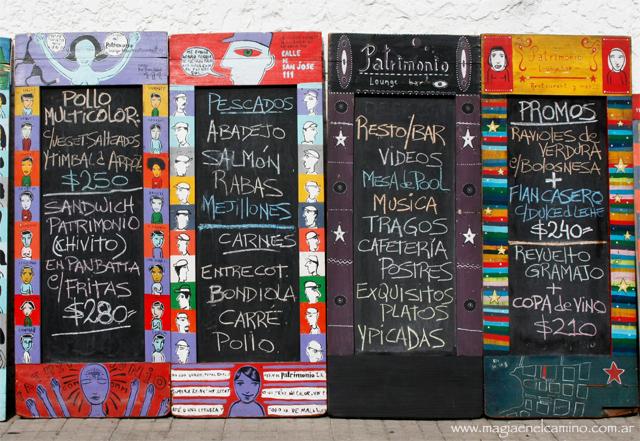 Patrimonio
POLLO
MULTICOLOR:
C/VEGETSALTEADOS
Y TIMBAL dE ARROZ
$250
SANDWICH
PATRIMONIO
(CHIVITO)
EN PAN BATTA
C/FRITAS
$280
CALLE
DE
SAN JOSE
111
PESCADOS
ABADEJO
SALMÓN
RABAS
MEJILLONES
CARNES
ENTRECOT.
BONDIOLA
CARRÉ
POLLO.
patrimonio
Patrimonio
Lounge bar
RESTO/BAR
VIDEOS
MESA de POOL
MUSICA
TRAGOS
CAFETERÍA
POSTRES
EXQUISITOS
PLATOS
Y PICADAS
Patrimonio
Lounge bar
PROMOS
RAVIOLES de
VERDURA
c/BOLOGNESA
+
FLAN CASERO
C/DULCE d LECHE
$240=
REVUELTO
GRAMAJO
+
COPA de VINO
$210
www.magiaenelcamino.com.ar